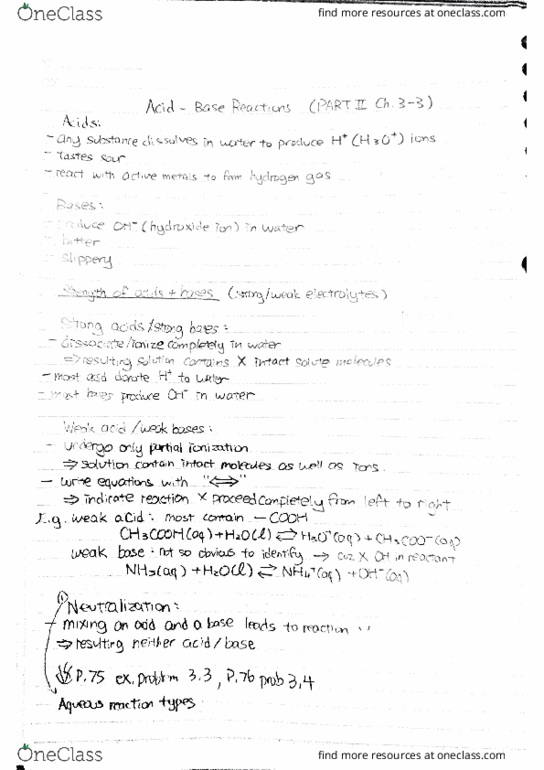 OneClass
find more resources at oneclass.com
Acid - Base Reactions (PART II Ch. 3-3)
Acids:
- any substance dissolves in water to produce H⁺ (H₃O⁺) ions
- tastes sour
- react with active metals to form hydrogen gas
Bases:
- produce OH⁻ (hydroxide ion) in water
- bitter
- slippery
Strength of acids + bases (strong/weak electrolytes)
Strong acids/strong bases:
- dissociate/ionize completely in water
⇒ resulting solution contains X intact solute molecules
- most acid donate H⁺ to water
- most bases produce OH⁻ in water
Weak acid /weak bases:
- undergo only partial ionization
⇒ solution contain intact molecules as well as ions.
- write equations with "⇔"
⇒ indicate reaction X proceed completely from left to right
E.g. weak acid: most contain -COOH
CH₃COOH(aq) + H₂O(l) ⇄ H₃O⁺(aq) + CH₃COO⁻(aq)
weak base: not so obvious to identify → cuz X OH in reactant
NH₃(aq) + H₂O(l) ⇄ NH₄⁺(aq) + OH⁻(aq)
① Neutralization:
- mixing an acid and a base leads to reaction
⇒ resulting neither acid/base
P.75 ex. problem 3.3, P.76 prob 3.4
Aqueous reaction types
OneClass
find more resources at oneclass.com